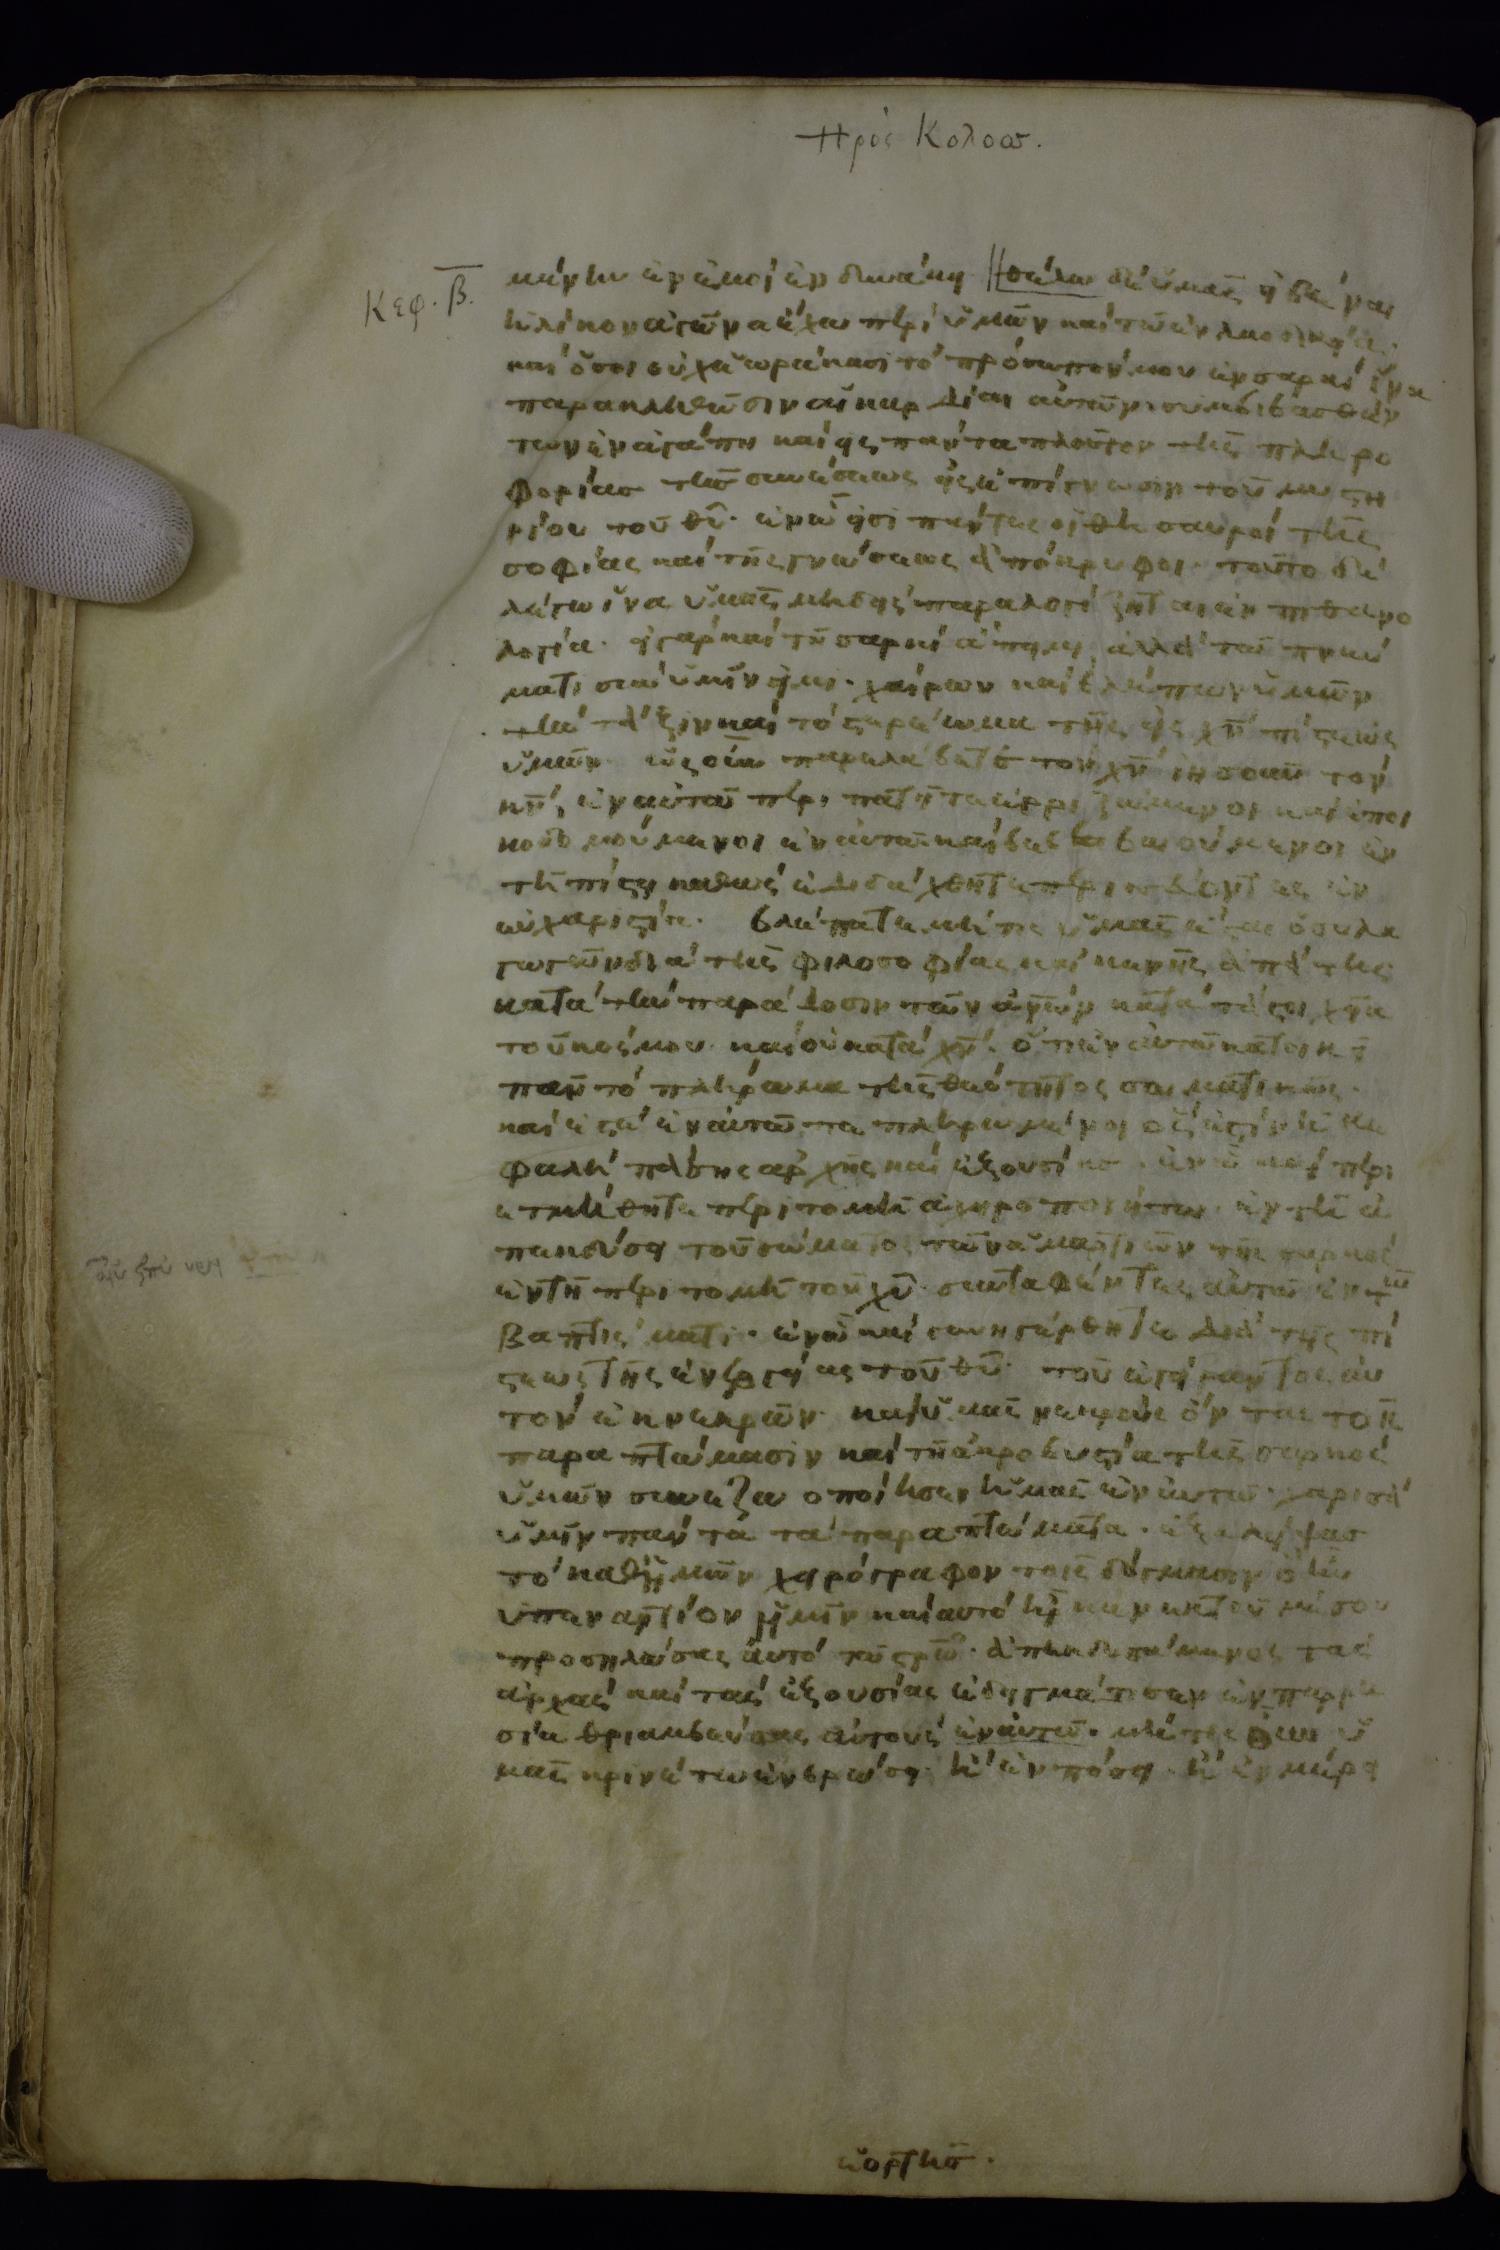 Πρὸς Κολοσ.
Κεφ. β.
μένην ἐν ἐμοὶ ἐν δυνάμει θέλω δὲ ὑμᾶς εἰδέναι
ἡλίκον ἀγῶνα ἔχω περὶ ὑμῶν καὶ τῶν ἐν λαοδικεία.
καὶ ὅσοι οὐχ ἑωράκασι τὸ πρόσωπόν μου ἐν σαρκί ἵνα
παρακληθῶσιν αἱ καρδίαι αὐτῶν· συμβιβασθέν
των ἐν ἀγάπη καὶ εἰς πάντα πλοῦτον τῆς πληρο
φορίας τῆς συνέσεως εἰς ἐπίγνωσιν τοῦ μυστη
ρίου τοῦ θῦ· ἐν ὧ εἰσὶ πάντες οἱ θησαυροὶ τῆς
σοφίας καὶ τῆς γνώσεως ἀπόκρυφοι· τοῦτο δὲ
λέγω ἵνα ὑμᾶς μηδεὶς παραλογίζηται ἐν πιθανο
λογία· εἰ γὰρ καὶ τῆ σαρκὶ ἄπειμι, ἀλλὰ τῶ πνεύ
ματι σὺν ὑμῖν εἰμι· χαίρων καὶ βλέπων ὑμῶν
τὴν τάξιν καὶ τὸ στερέωμα τῆς εἰς χν πίστεως
ὑμῶν· ὡς οὖν παρελάβετε τὸν χν ἰησοῦν τὸν
κν, ἐν αὐτῶ περιπατεῖτε ἐρριζωμένοι καὶ ἐποι
κοδομούμενοι ἐν αὐτῶ καὶ βεβαιούμενοι ἐν
τῆ πίστει καθὼς ἐδιδάχθητε περισσεύοντες ἐν
εὐχαριστία· βλέπετε μή τις ὑμᾶς ἔσται ὁ συλα
γωγῶν διὰ τῆς φιλοσοφίας καὶ κενῆς ἀπάτης
κατὰ τὴν παράδοσιν τῶν ἀνων κατὰ τὰ στοιχεῖα
τοῦ κόσμου καὶ οὐ κατὰ χν· ὅτι ἐν αὐτῶ κατοικεῖ
πᾶν τὸ πλήρωμα τῆς θεότητος σωματικῶς·
καὶ ἐστὲ ἐν αὐτῶ πεπληρωμένοι ὅς ἐστὶν ἡ κε
φαλὴ πάσης ἀρχῆς καὶ ἐξουσίας· ἐν ὧ καὶ περι
ετμήθητε περιτομῆ ἀχειροποιήτω· ἐν τῆ ἀ
πεκδύσει τοῦ σώματος τῶν ἁμαρτιῶν τῆς σαρκὸς
ἐν τῆ περιτομῆ τοῦ χῦ· συνταφέντες αὐτῶ ἐν τῶ
βαπτίσματι· ἐν ὧ καὶ συνηγέρθητε διὰ τῆς πί
στεως τῆς ἐνεργείας τοῦ θῦ· τοῦ ἐγείραντος αὐ
τὸν ἐκ νεκρῶν· καὶ ὑμᾶς νεκροὺς ὄντας τοῖς
παραπτώμασιν καὶ τῆ ἀκροβυστία τῆς σαρκὸς
ὑμῶν συνεζωοποίησεν ὑμᾶς ἐν αὐτῶ· χαρισά
ὑμῖν πάντα τὰ παραπτώματα· ἐξαλείψας
τὸ καθ' ἡμῶν χειρόγραφον τοῖς δόγμασιν ὃ ἦν
ὑπεναντίον ἡμῖν καὶ αυτὸ ἦρκεν ἐκ τοῦ μέσου
προσηλώσας αὐτὸ τῶ στρω· ἀπεκδυσάμενος τὰς
ἀρχὰς καὶ τὰς ἐξουσίας ἐδειγμάτισεν ἐν παρρη
σία θριαμβεύσας αὐτοὺς ἐν αὐτῶ· μή τις οὖν ὑ
μᾶς κρινέτω ἐν βρώσει· ἢ ἐν πόσει· ἢ ἐν μέρει
ἑορτῆς·